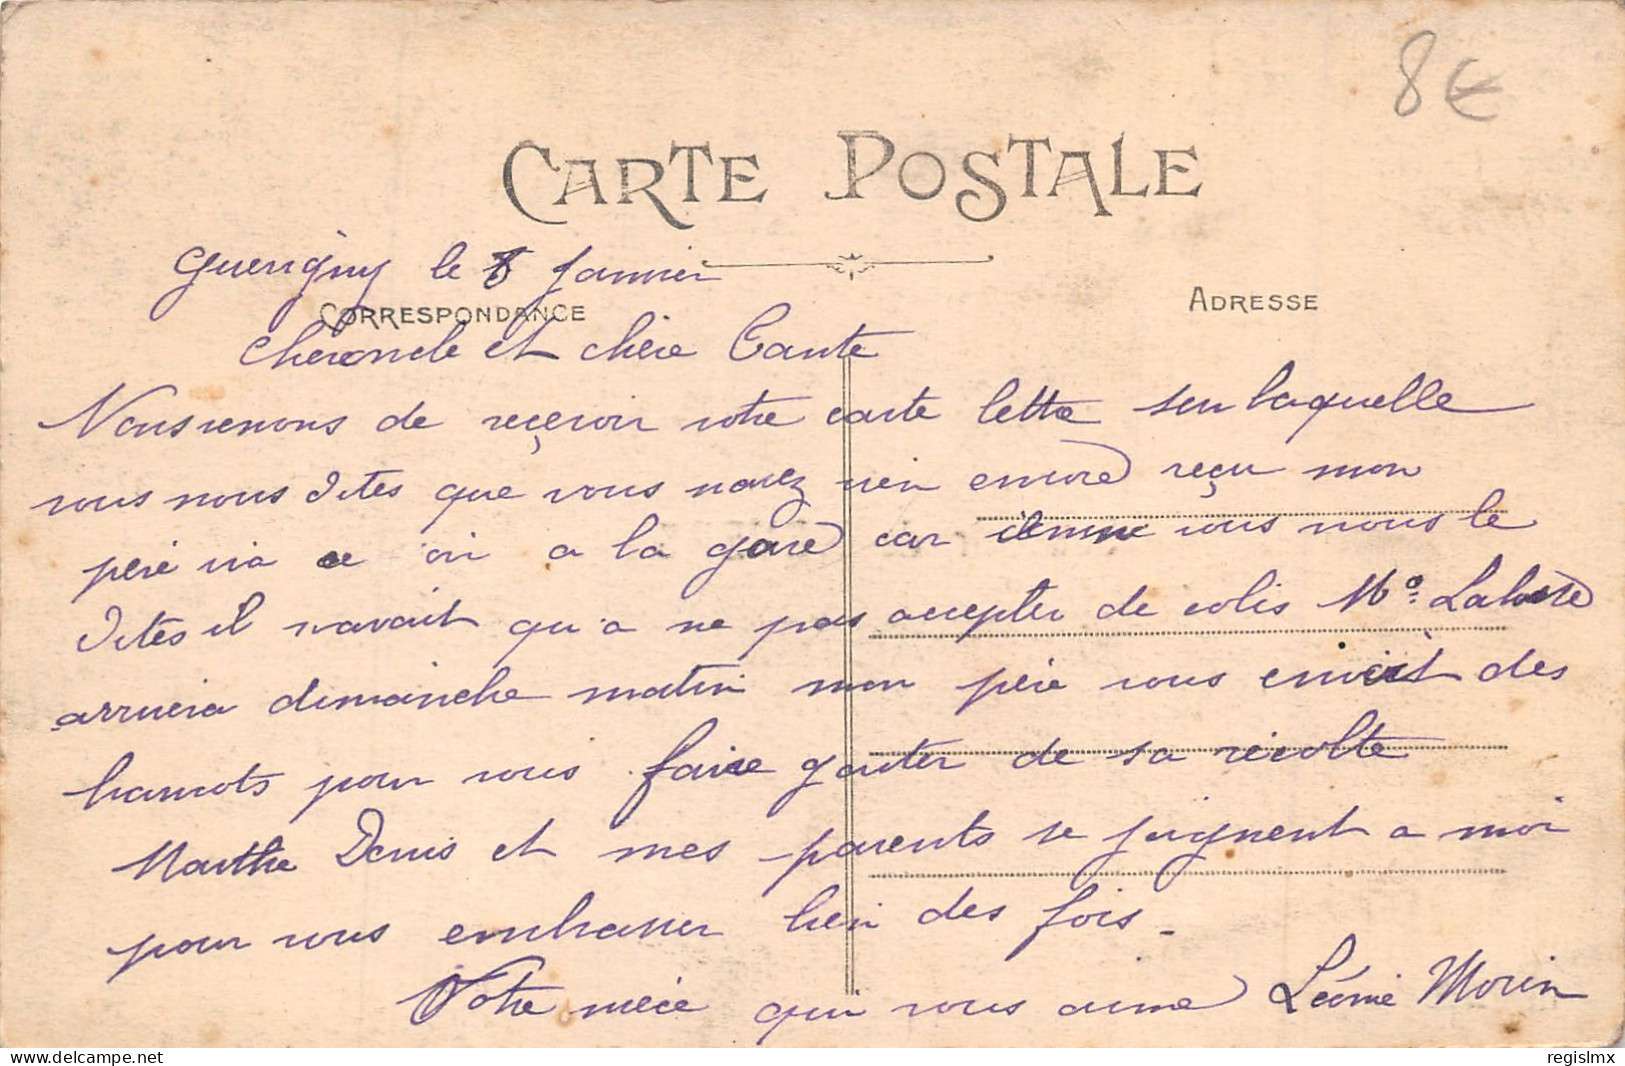 8€
CARTE POSTALE
Guerigny le 8 Janvier
CORRESPONDANCE
ADRESSE
Cher oncle et chère Tante
Nous venons de reçevoir votre carte lettre sur laquelle
vous nous dites que vous navez rien encore reçu mon
père va ce a la gare car comme vous nous le
dites il navait qu a ne pas accepter de colis Mr
arrivera dimanche matin mon père vous envoit des
haricots pour vous faire gouter de sa récolte
Marthe Denis et mes parents se joignent a moi
pour vous embrasser bien des fois.
Votre nièce qui vous aime Léonie Morin
regislmx
delcampe.net